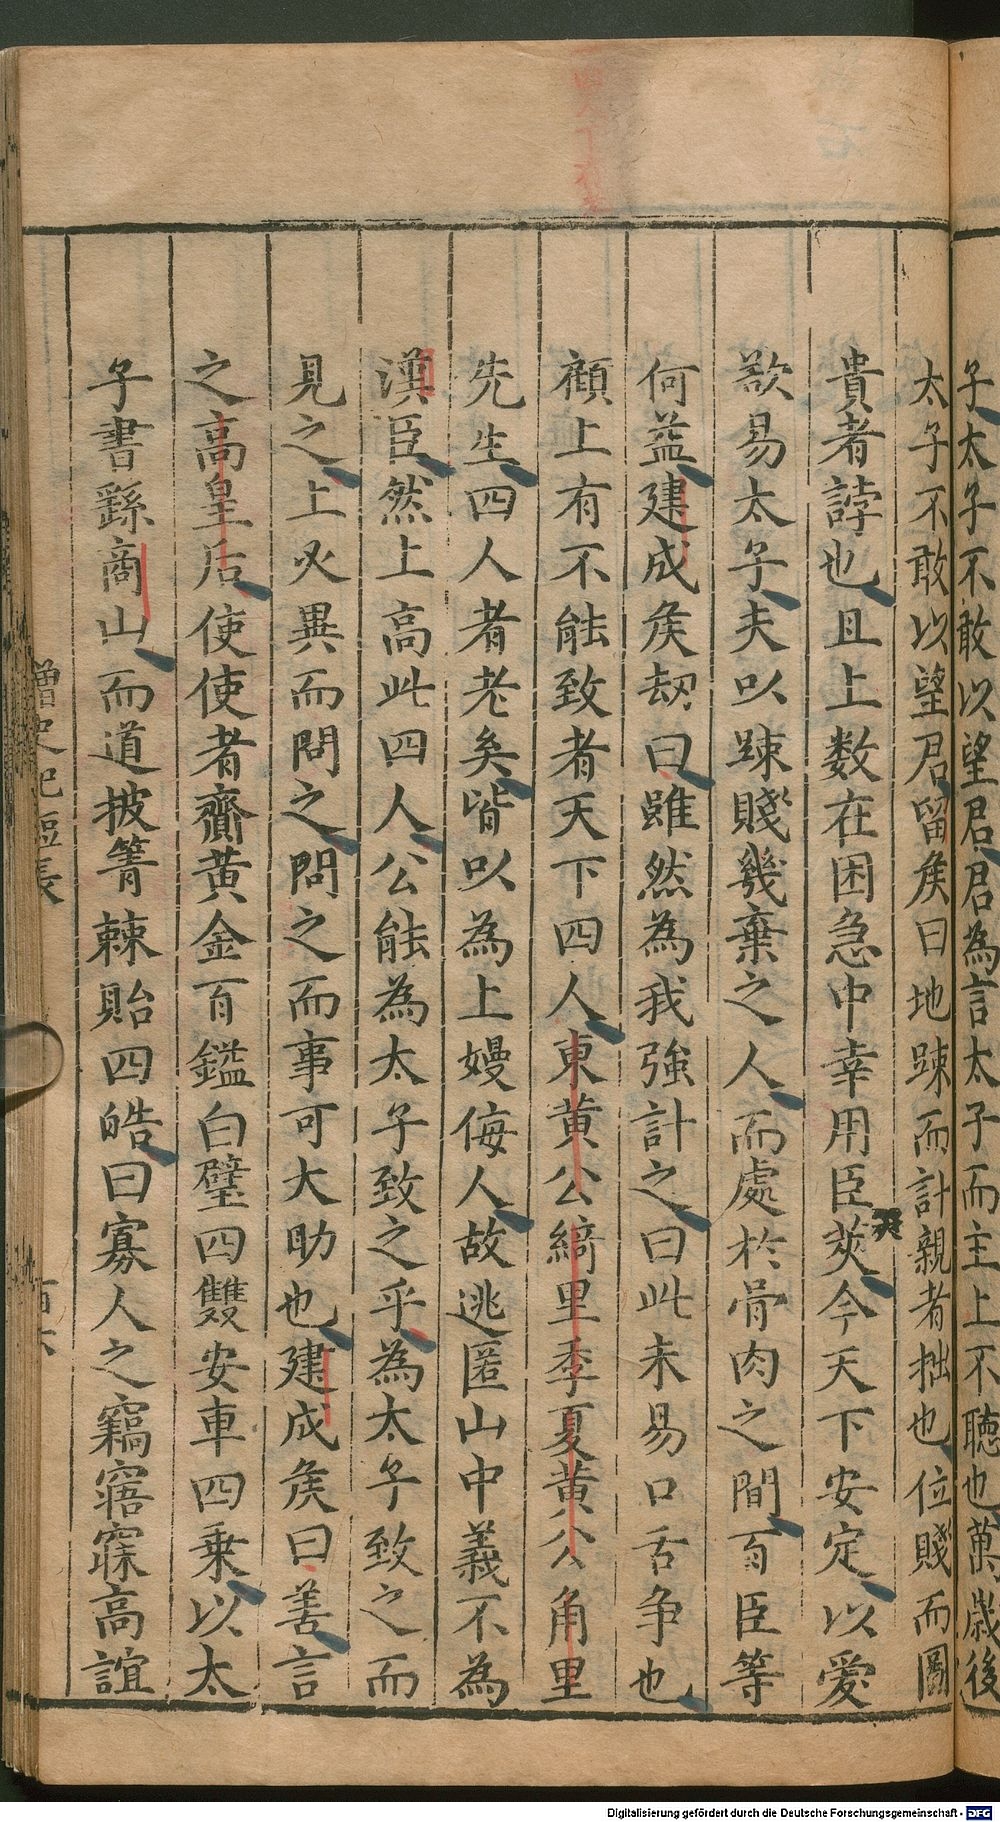 子太子不敢以望君君為言太子而主上不聽也萬歲後
太子不敢以望君留矦曰地踈而計親者拙也位賤而圖
貴者誖也且上数在困急中幸用臣筴今天下安定以愛
欲易太子夫以踈賤幾棄之人而處於骨肉之間百臣等
何益建成矦刼曰雖然為我強計之曰此未易口舌争也
顧上有不能致者天下四人東黄公綺里季夏黄公角里
先生四人者老矣皆以為上嫚侮人故逃匿山中義不為
漢臣然上高此四人公能為太子致之乎為太子致之而
見之上必異而問之問之而事可大助也建成矦曰善言
之高皇后使使者齎黄金百鎰白璧四雙安車四乗以太
子書繇商山而道披箐棘貽四皓曰寡人之竊寤寐高誼
Digitalisierung gefördert durch die Deutsche Forschungsgemeinschaft - DFG